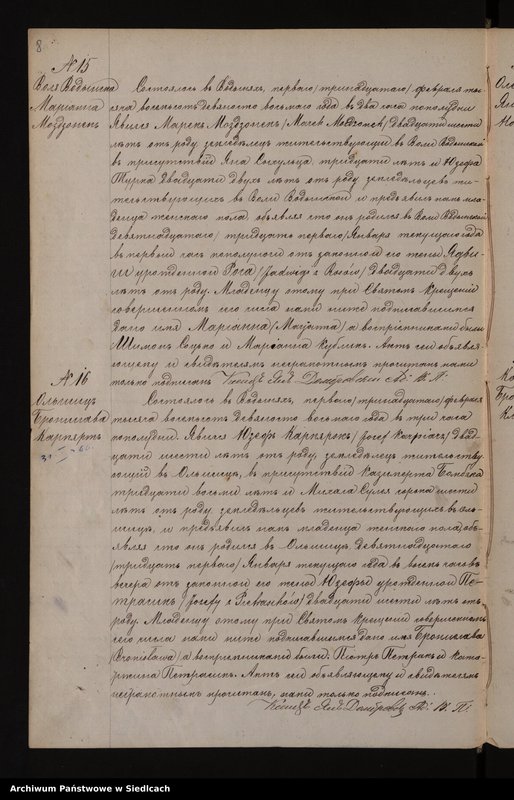 8
N 15
Воля Водынска
Марианна
Моздзонекъ
Состоялось въ Водыняхъ, перваго /тринадцатаго/ февраля ты-
сяча восемьсотъ девяносто восьмаго года въ два часа пополудни
Явился Марекъ Моздзонекъ /Marek Możdżonek/ двадцати шести
лѣтъ отъ роду земледѣлецъ жительствующій въ Воли Водынской
въ присутствіи Яна тридцати лѣтъ и Юзефа
двадцати двухъ лѣтъ отъ роду земледѣльцевъ жи-
тельствующихъ въ Воли Водынской и предъявилъ намъ мла-
денца женскаго пола, объявляя что онъ родился въ Воли Водынской
девятнадцатаго /тридцать перваго/ Января текущаго года
въ первый часъ пополудни отъ законной его жены Ядви-
ги урожденной Рога /Jadwigi z Rogów/ двадцати двухъ
лѣтъ отъ роду. Младенцу этому при Святомъ Крещеніи
совершенномъ сего числа нами ниже подписавшимся
дано имя Марианна /Maryanna/ а воспріемниками были
Шимонъ Соцько и Марианна Кублик. Актъ сей объявля-
ющему и свидѣтелямъ неграмотнымъ прочитанъ нами
только подписанъ Ксендзъ Янъ Домбровскій Н. В. П.
N 16
Ольшицъ
Бронислава
Карпяркъ
Состоялось въ Водыняхъ, перваго /тринадцатаго/ февраля
тысяча восемьсотъ девяносто восьмаго года въ три часа
пополудни. Явился Юзефъ Карпяркъ /Józef Karpiarz/ двад-
цати шести лѣтъ отъ роду, земледѣлецъ жительству-
ющій въ Ольшицъ, въ присутствіи Казимержа
тридцати восьми лѣтъ и Михала сорока шести
лѣтъ отъ роду земледѣльцевъ жительствующихъ въ Оль-
шицъ, и предъявилъ намъ младенца женскаго пола, объ-
являя что онъ родился въ Ольшицъ девятнадцатаго
/тридцать перваго/ Января текущаго года въ восемь часовъ
вечера отъ законной его жены Юзефы урожденной Пе-
трасикъ /Józefy z Pietrasików/ двадцати шести лѣтъ отъ
роду. Младенцу этому при Святомъ Крещеніи совершенномъ
сего числа нами ниже подписавшимся дано имя Бронислава
/Bronisława/ а воспріемниками были: Піотръ Петрасикъ и Ката-
ржина Петрасикъ. Актъ сей объявляющему и свидѣтелямъ
неграмотнымъ прочитанъ, нами только подписанъ.
Ксендзъ Янъ Домбровскій Н. В. П.
Archiwum Państwowe w Siedlcach